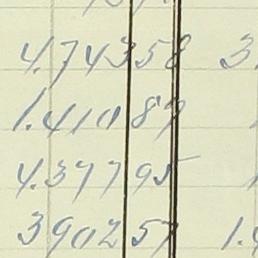 4.743 58 3.
1.411 87
4.377 95
3902 57 1.